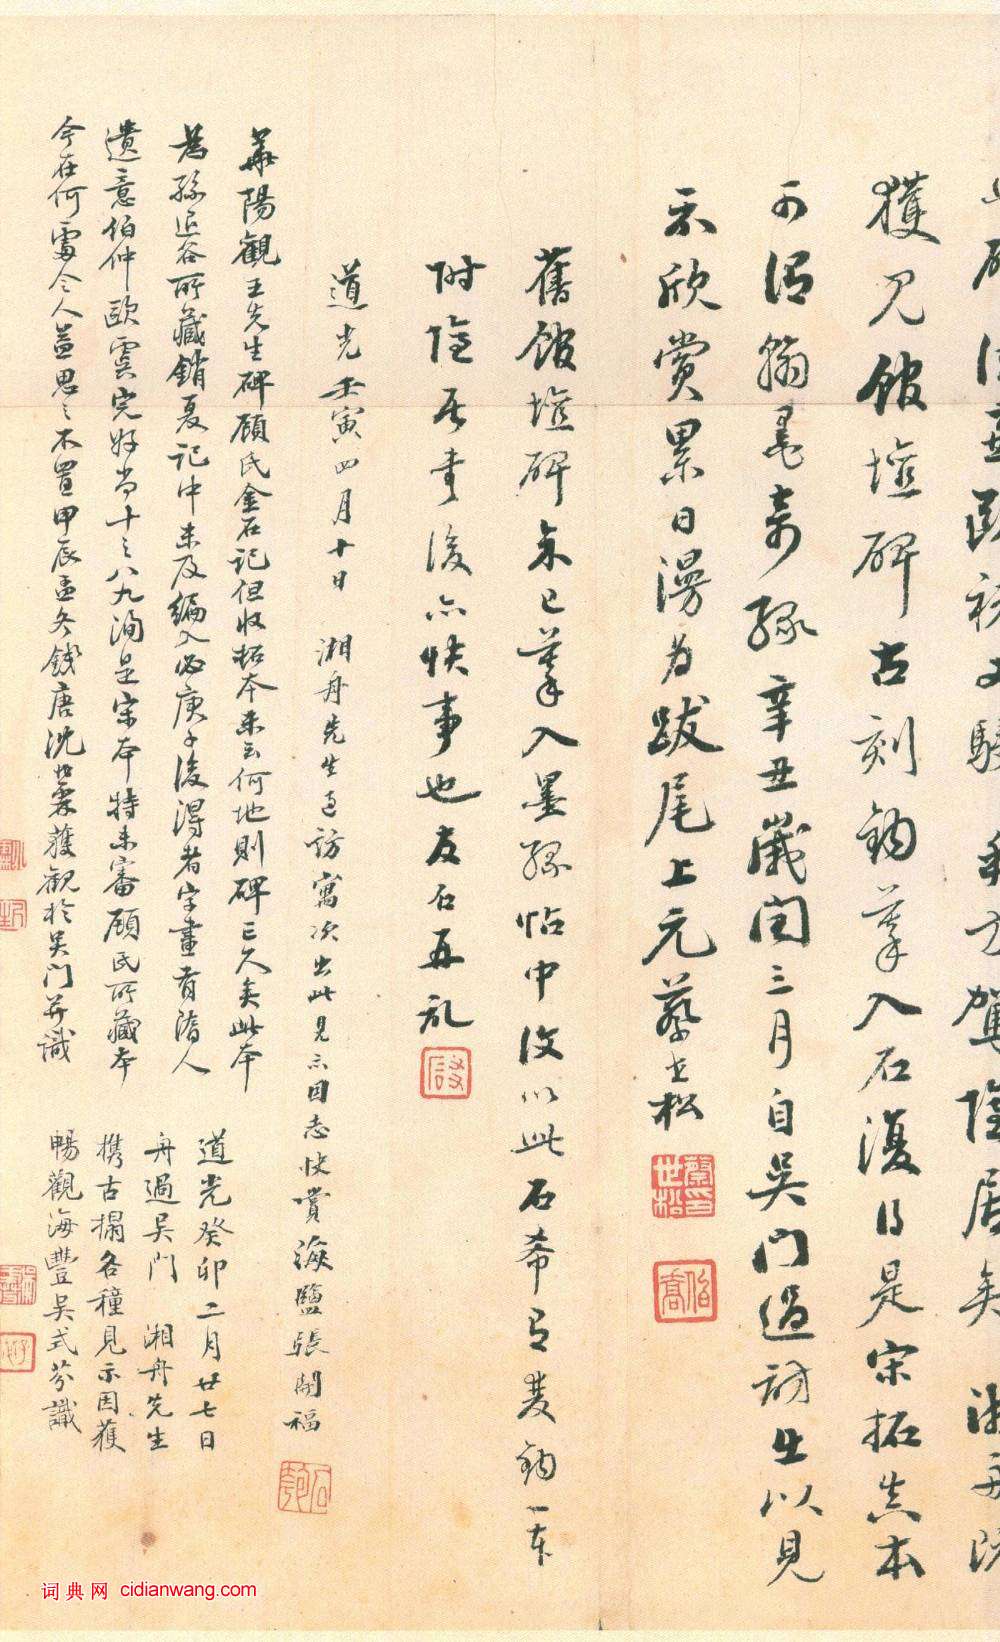 獲見館壇碑古刻鈎摹入石復得是宋拓真本
可謂翰墨奇緣辛丑歲閏三月自吳門過訪出以見
示欣賞累日漫為跋尾上元蔡世松
舊館壇碑余已摹入墨緣帖中後以此石希有爰鈎一本
附隱居書後亦快事也友石再乩
道光壬寅四月十日 湘舟先生過訪寓次出此見示因志快賞海鹽張開福
華陽觀王先生碑顧氏金石記但收拓本未云何地則碑亡久矣此本
為孫退谷所藏銷夏記中未及編入必庚子後得者字畫有隋人
遺意伯仲歐虞完好尚十之八九洵是宋本特未審顧氏所藏本
今在何處令人益思之不置甲辰孟冬錢唐沈獲觀於吳門并識
道光癸卯二月廿七日
舟過吳門 湘舟先生
攜古搨各種見示因獲
暢觀海豐吳式芬識
蔡世松印
伯喬
石匏
词典网 cidianwang.com